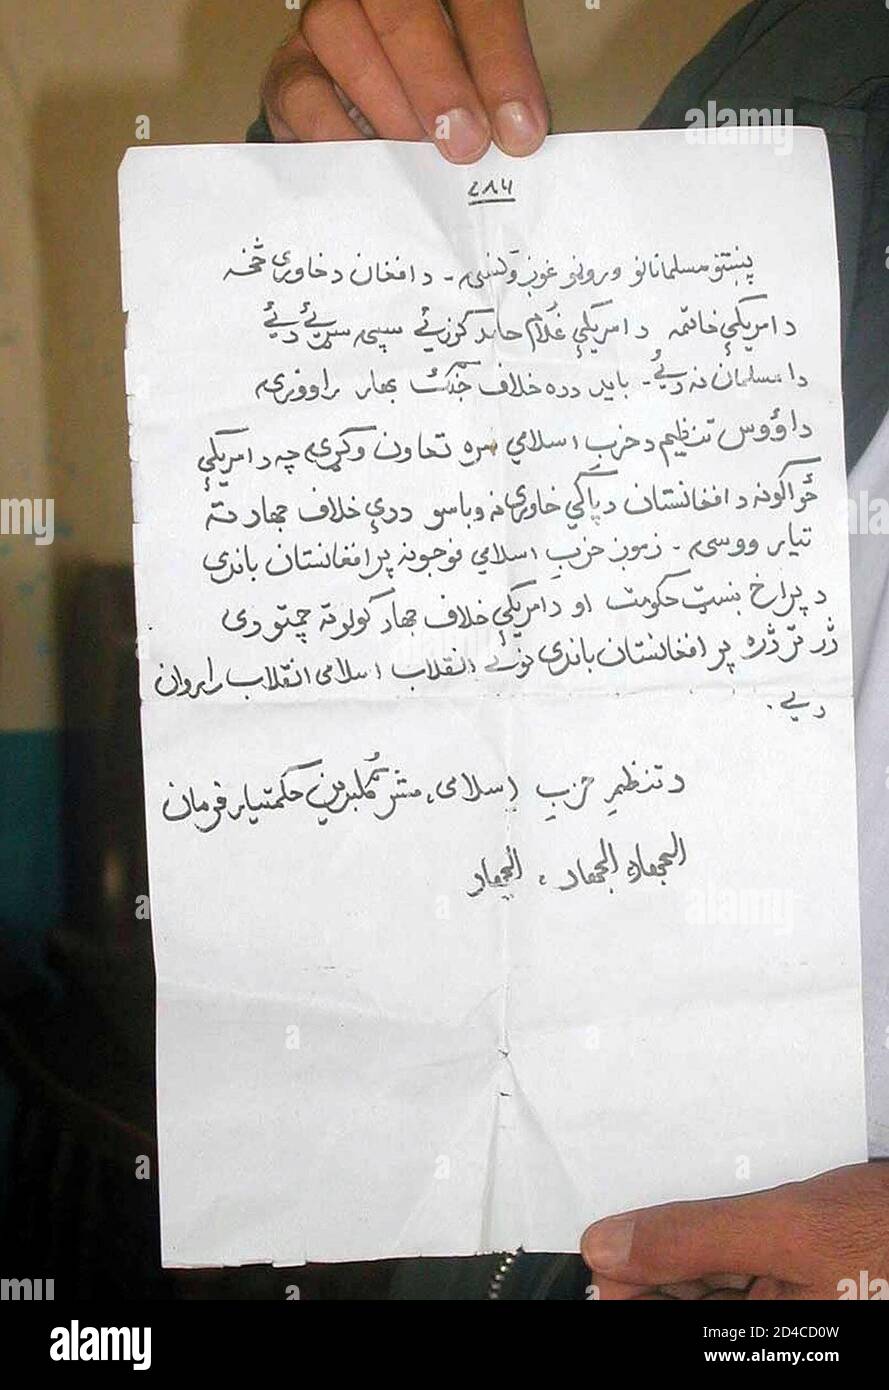 ۷۸۶
پښتنو مسلمانانو وروڼو غوږ ونیسی۔ د افغان د خاوری څخه
د امریکې خاتمه د امریکې غلام حامد کرزئے سپی سړئے دئے
دا مسلمان نه دئے۔ باید دده خلاف جنګ بهار راووزی
د تنظیم د حزب اسلامي سره تعاون وکړی چه د امریکې
ځواکونه د افغانستان د پاکې خاورې نه وباسو ددې خلاف جهاد ته
تیار ووسی۔ زمونږ حزب اسلامي فوجونه پر افغانستان باندی
د پراخ بنسټ حکومت او د امریکې خلاف جهاد کولو ته چمتو دی
ژر تر ژره پر افغانستان باندی انقلاب اسلامی انقلاب راروان
دے۔
د تنظیم حزب اسلامی مشر ګلبدین حکمتیار فرمان
الجهاد الجهاد، الجهاد
alamy
Image ID: 2D4CD0W
www.alamy.com